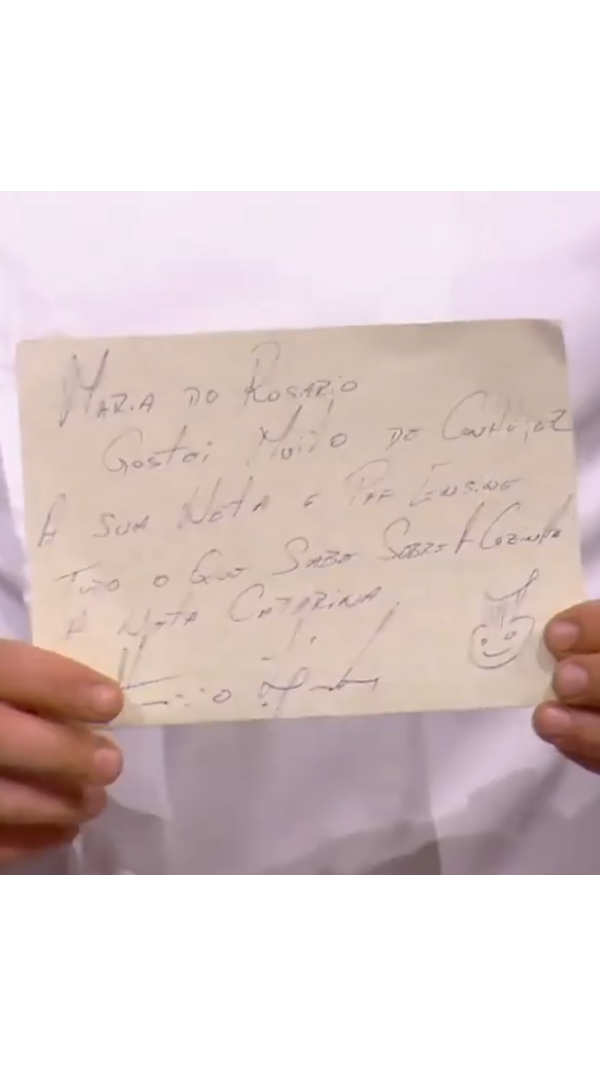 MARIA DO ROSARIO
GOSTEI MUITO DE CONHECER
A SUA NETA E
ENSINE
TUDO O QUE SABE SOBRE A COZINHA
A NETA CATARINA